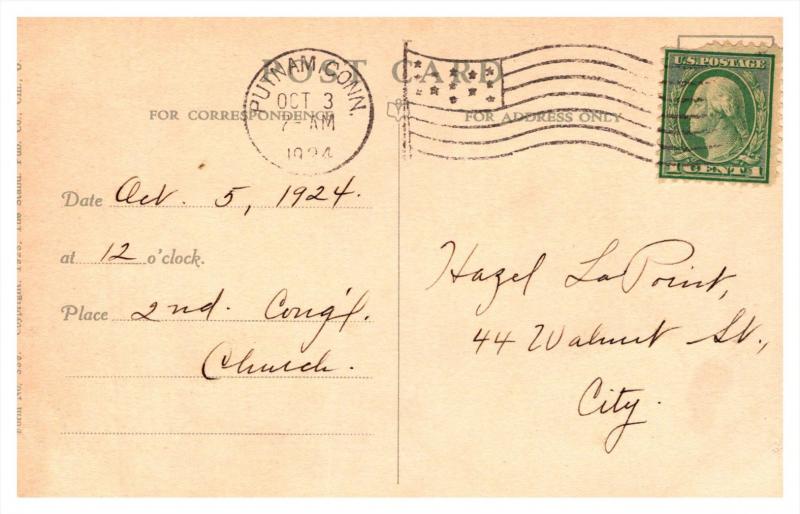 POST CARD
FOR CORRESPONDENCE
FOR ADDRESS ONLY
PUTNAM, CONN.
OCT 3
7-AM
1924
U.S. POSTAGE
1 CENT 1
Date Oct. 5, 1924.
at 12 o'clock.
Place 2nd. Cong'l.
Church.
Hazel LaPoint,
44 Walnut St.,
City.
Copyright, 1923, The Stand. Pub. Co., Cin., O.